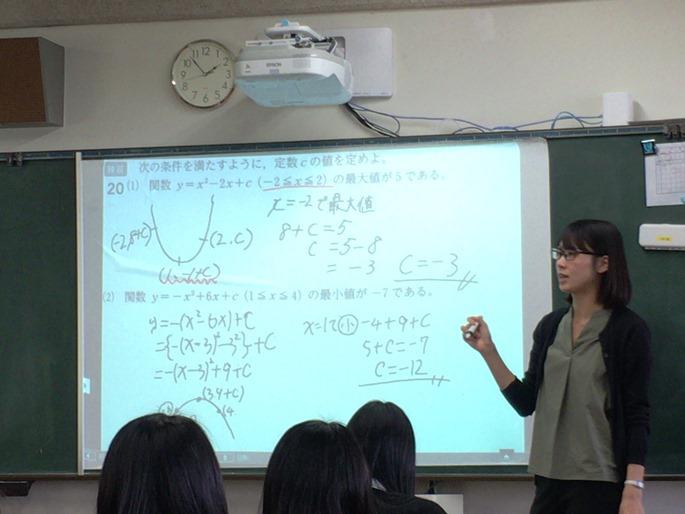 EPSON
練習 次の条件を満たすように，定数cの値を定めよ。
20 (1) 関数 y=x²−2x+c (−2≦x≦2) の最大値が5である。
x=-2で最大値
(-2,8+C)
(2,C)
8+C=5
C=5-8
=-3
C=-3
(2) 関数 y=−x²+6x+c (1≦x≦4) の最小値が−7である。
y=-(x²-6x)+C
={-(x-3)²-3²}+C
=-(x-3)²+9+C
(3,9+C)
(4
x=1で小 -4+9+C
5+C=-7
C=-12